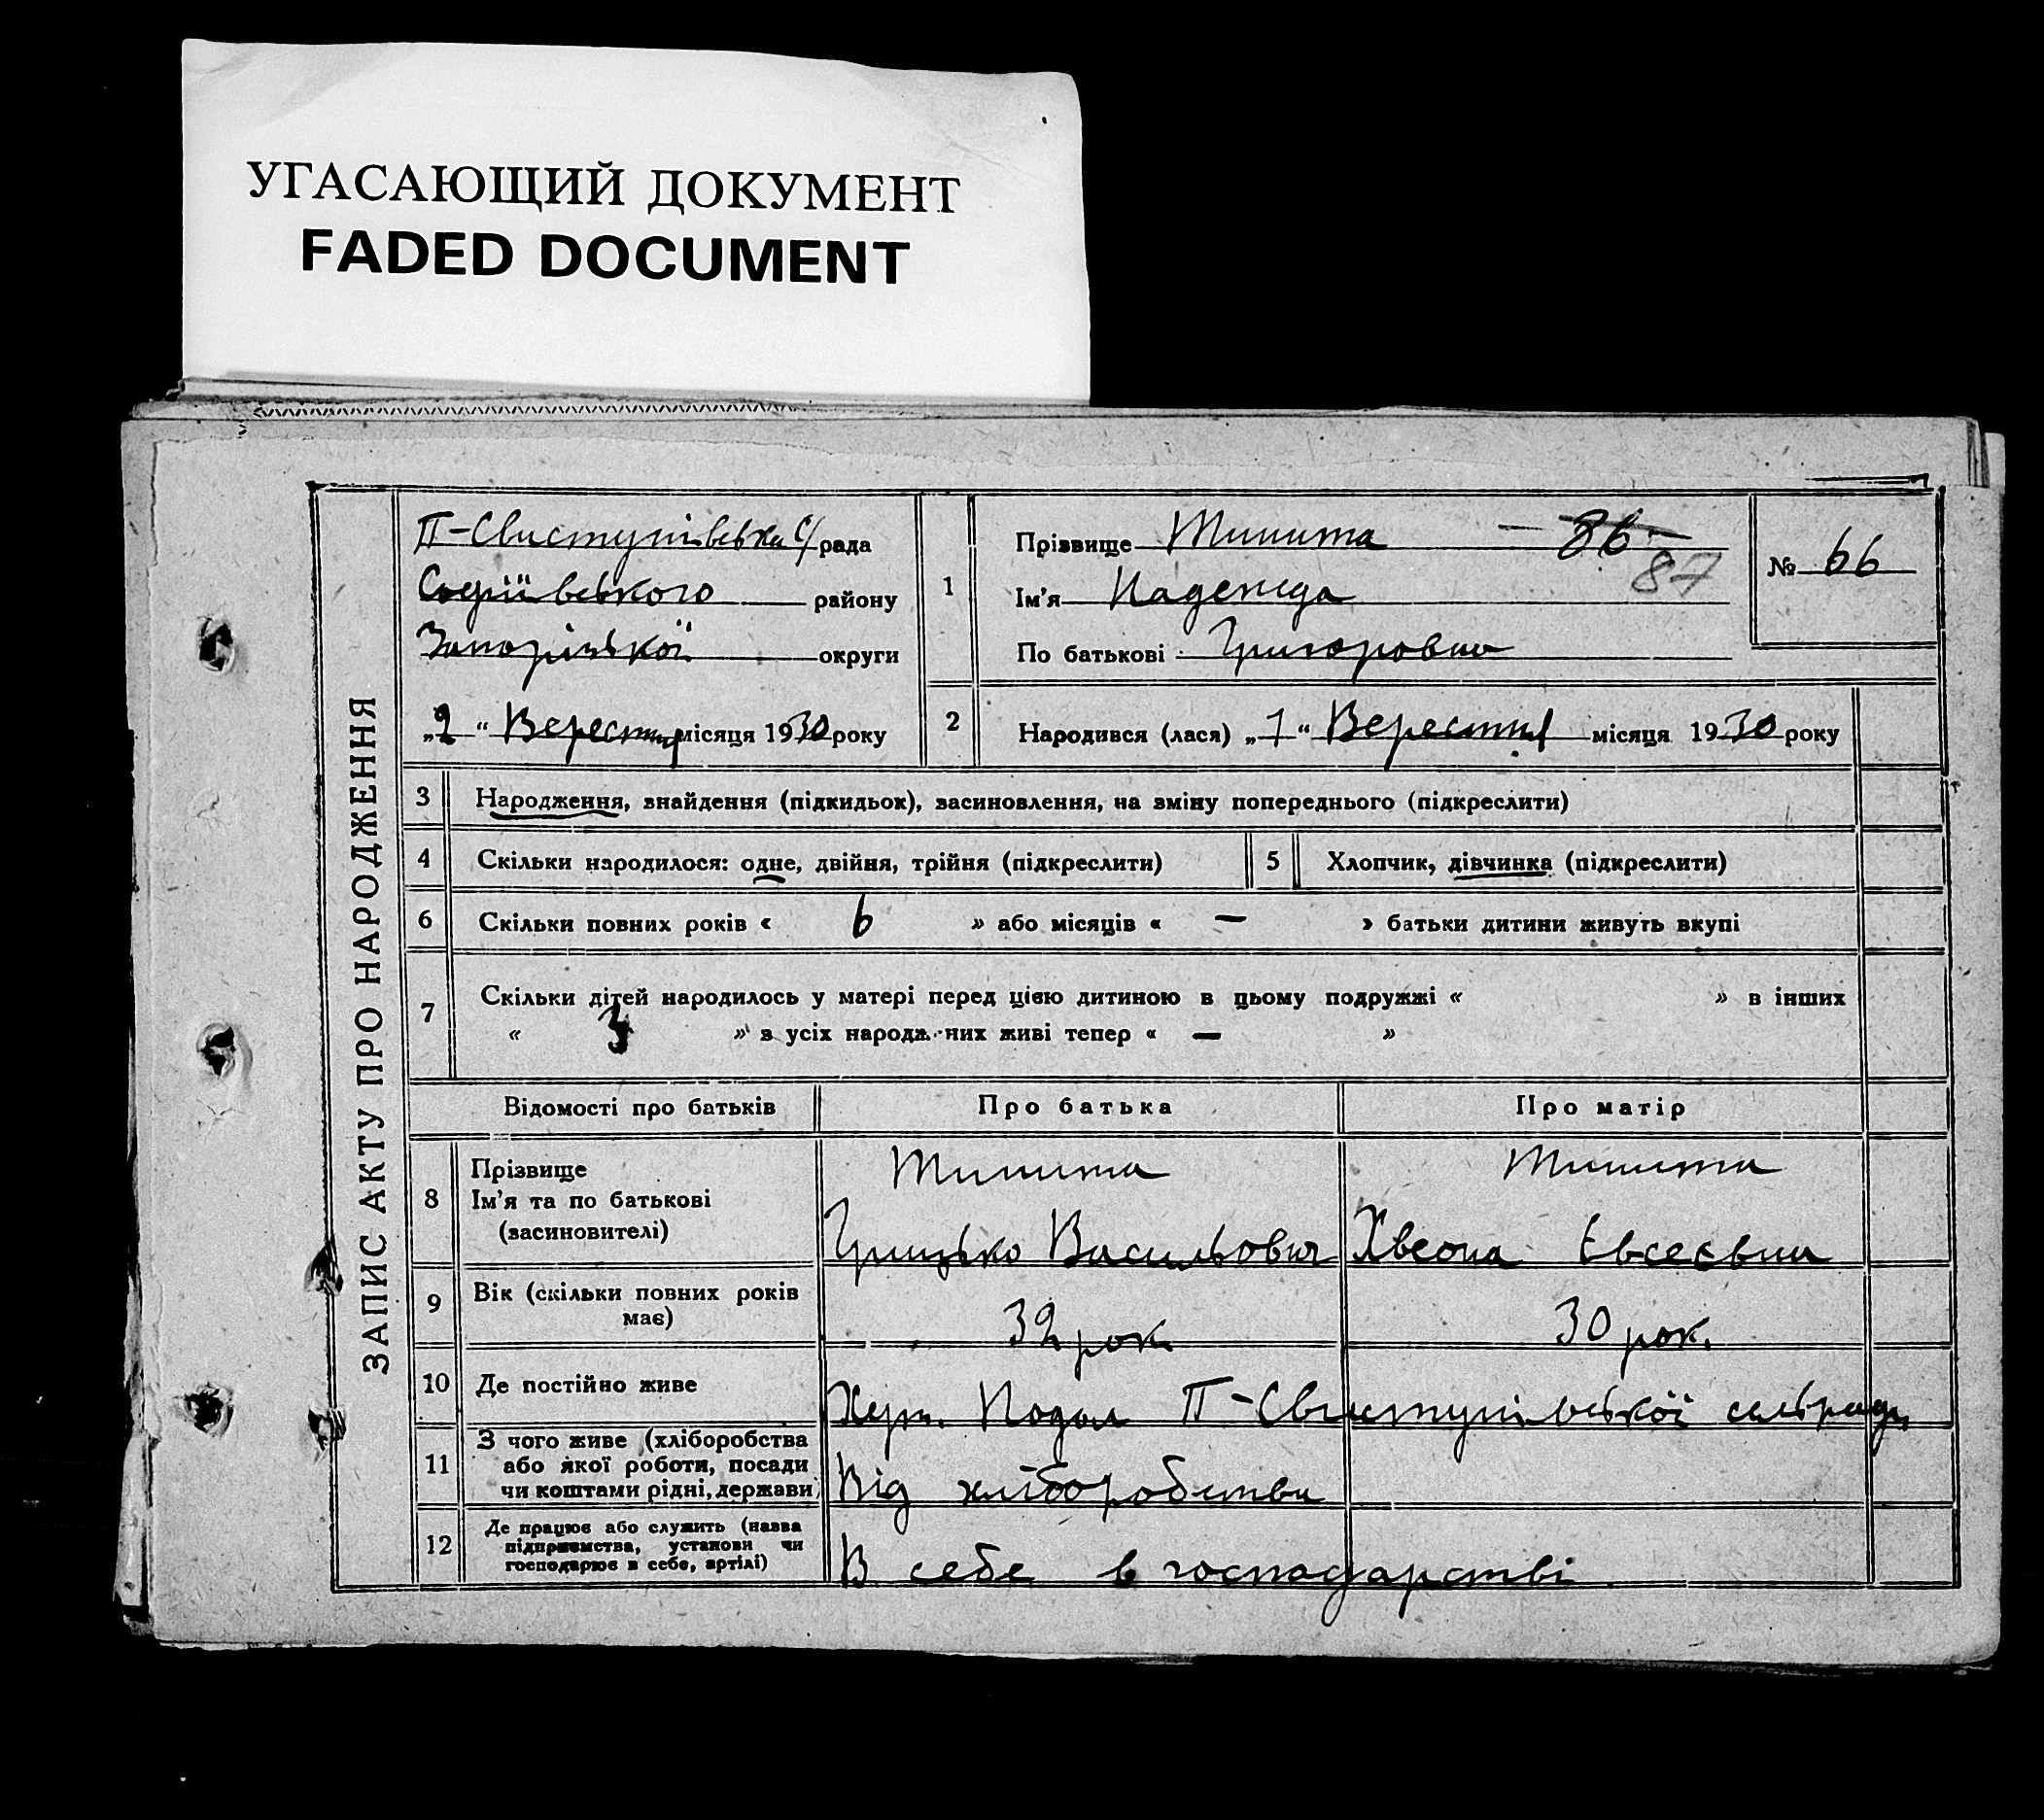 УГАСАЮЩИЙ ДОКУМЕНТ
FADED DOCUMENT
ЗАПИС АКТУ ПРО НАРОДЖЕННЯ
П-Свистунівська с/рада
Софіївського району
Запорізької округи
„2“ Вересня місяця 1930 року
1
Прізвище 86
87
Ім'я Надежда
По батькові Григоровна
№ 66
2 Народився (лася) „1“ Вересня місяця 1930 року
3 Народження, знайдення (підкидьок), засиновлення, на зміну попереднього (підкреслити)
4 Скільки народилося: одне, двійня, трійня (підкреслити)
5 Хлопчик, дівчинка (підкреслити)
6 Скільки повних років « 6 » або місяців « — » батьки дитини живуть вкупі
7 Скільки дітей народилось у матері перед цією дитиною в цьому подружжі « » в інших
« 3 » з усіх народж. них живі тепер « — »
Відомості про батьків Про батька Про матір
8 Прізвище
Ім'я та по батькові
(засиновителі)
Грицько Васильович Хвеона Євсеєвна
9 Вік (скільки повних років
має)
32 рок. 30 рок.
10 Де постійно живе П-Свистунівської сельради
11 З чого живе (хліборобства
або якої роботи, посади
чи коштами рідні, держави)
Від хліборобства
12 Де працює або служить (назва
підприємства, установи чи
господарює в себе, артілі)
В себе в господарстві